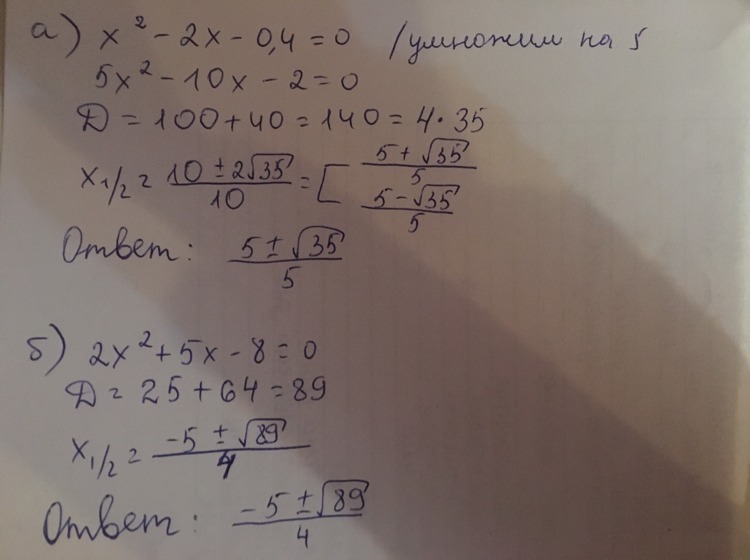 а) x² - 2x - 0,4 = 0 /умножим на 5
5x² - 10x - 2 = 0
Д = 100 + 40 = 140 = 4 · 35
x₁/₂ = (10 ± 2√35)/10 = [ (5 + √35)/5
(5 - √35)/5
Ответ: (5 ± √35)/5
б) 2x² + 5x - 8 = 0
Д = 25 + 64 = 89
x₁/₂ = (-5 ± √89)/4
Ответ: (-5 ± √89)/4